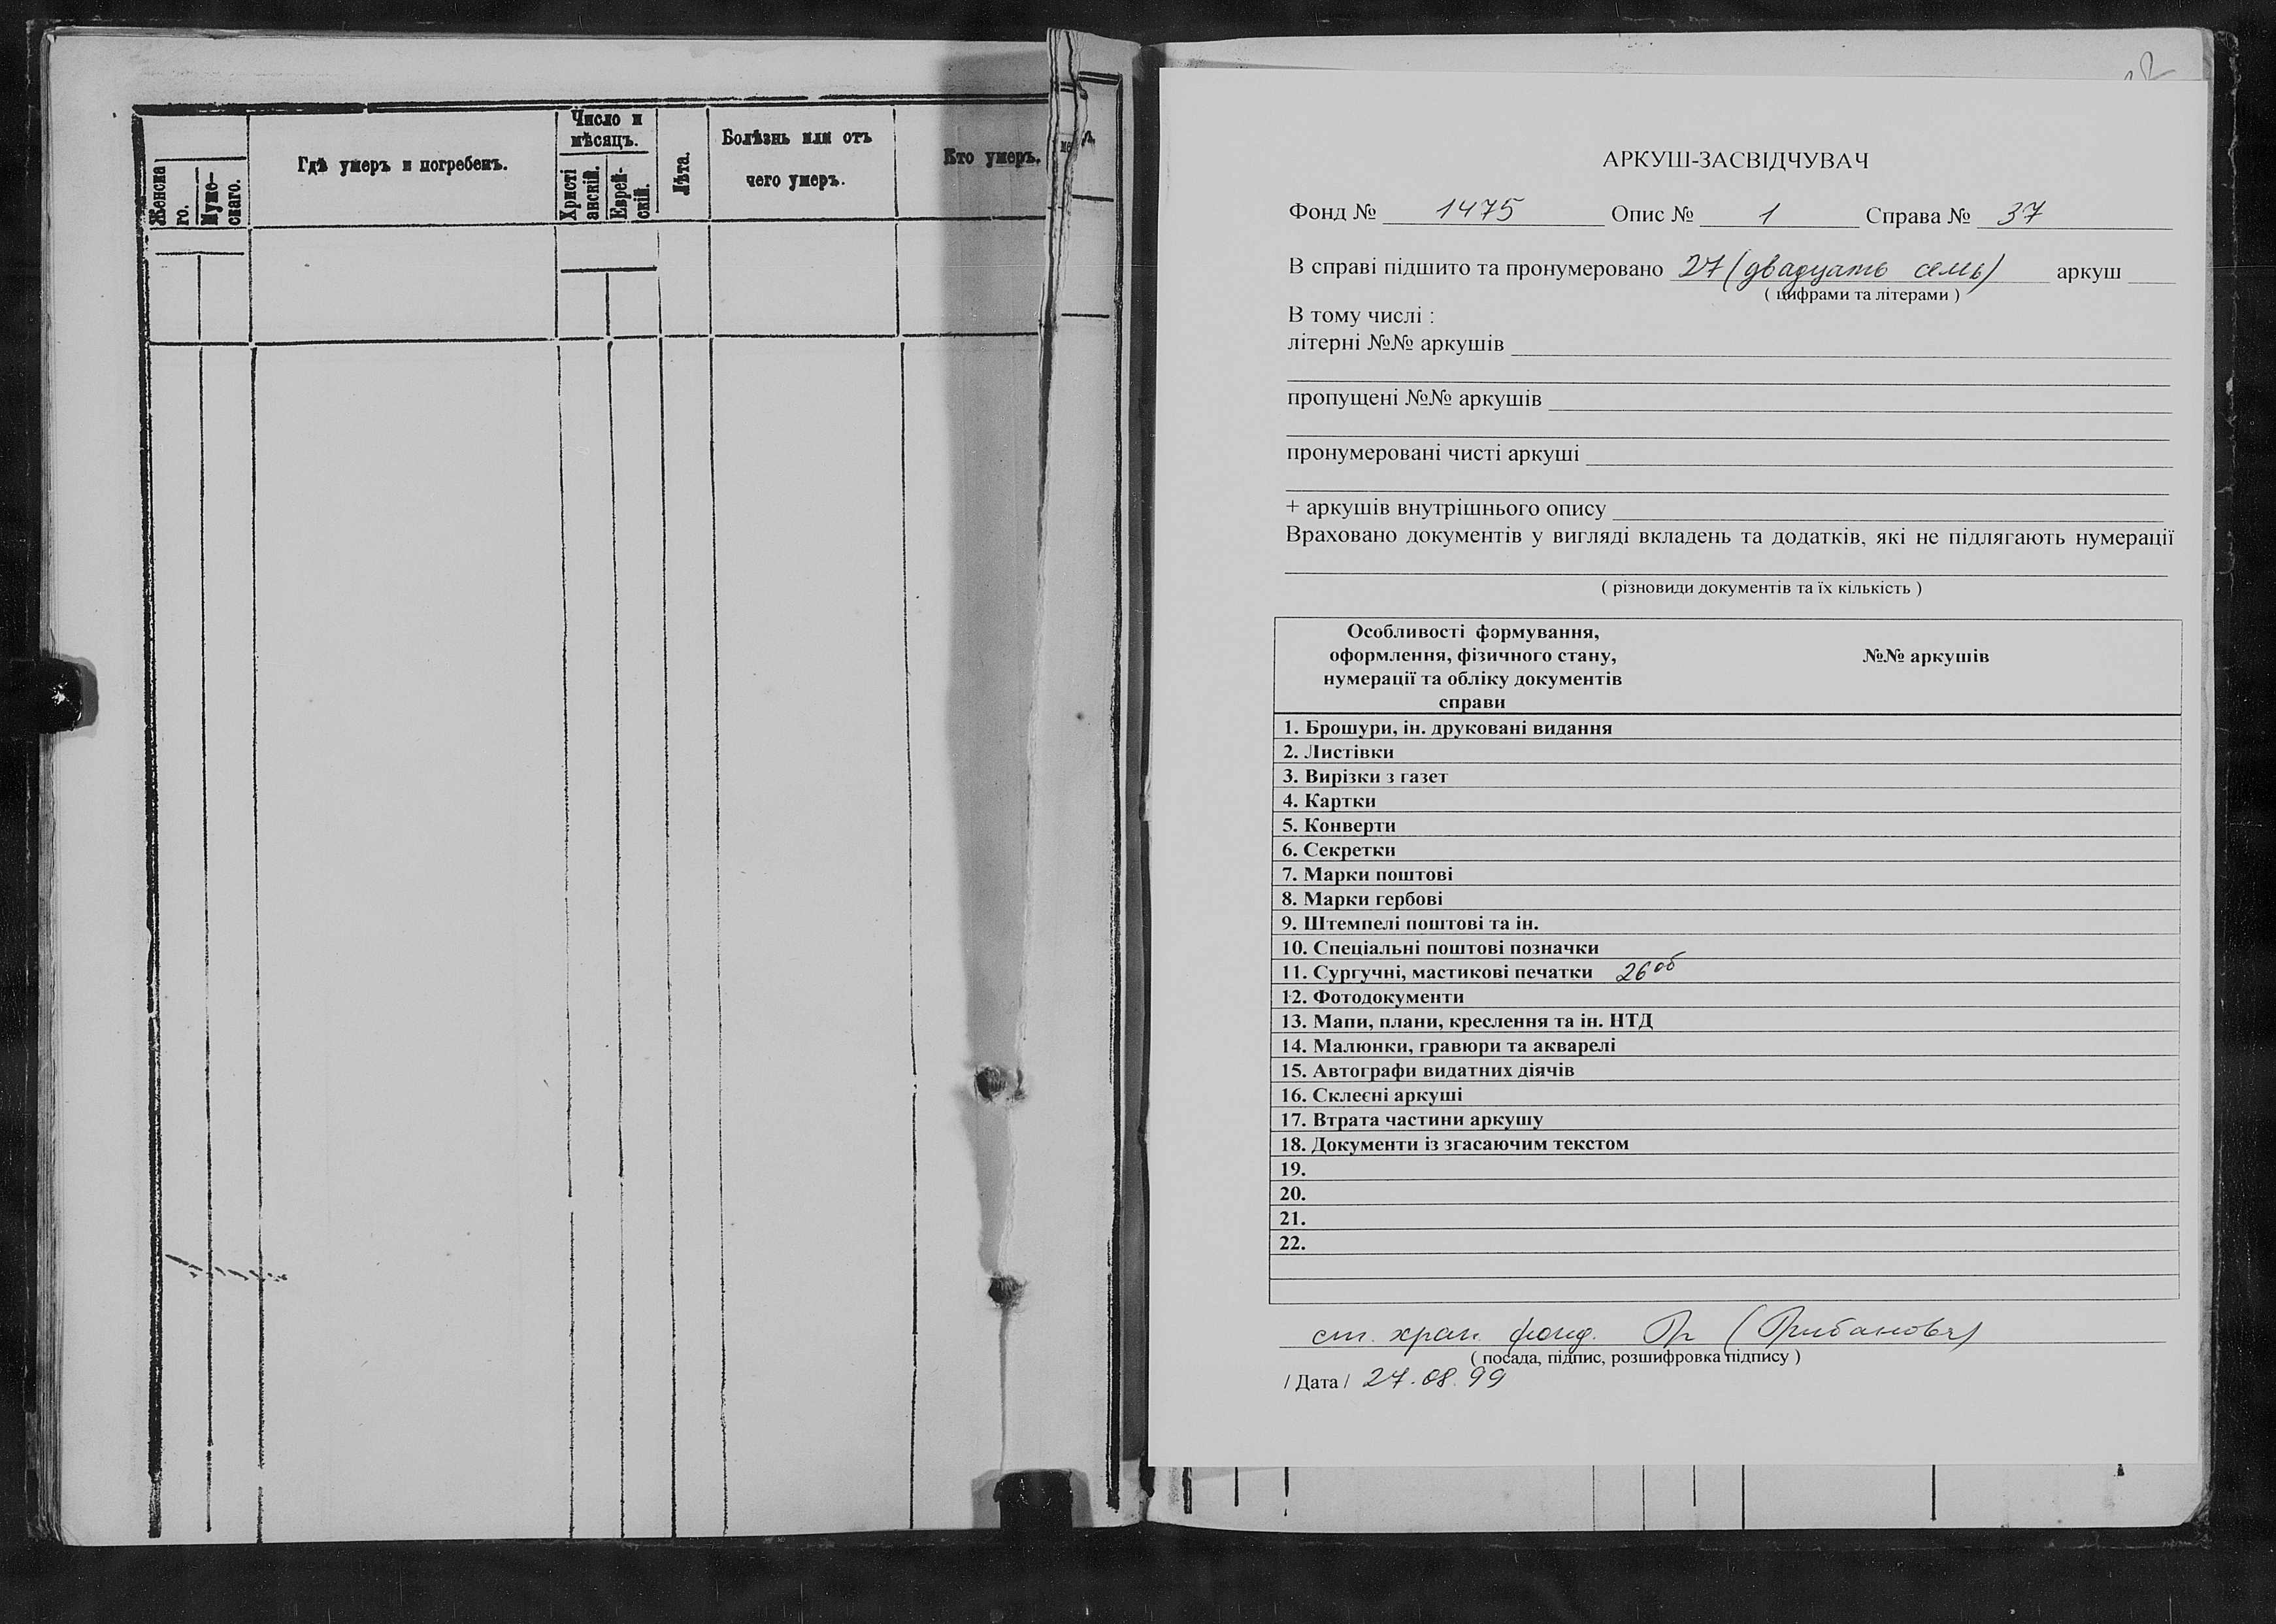 Женска
го.
Муже-
скаго.
Гдѣ умеръ и погребенъ.
Число и
мѣсяцъ.
Христі
анскій.
Еврей-
скій.
Лѣта.
Болѣзнь или отъ
чего умеръ.
Кто умеръ.
АРКУШ-ЗАСВІДЧУВАЧ
Фонд № 1475 Опис № 1 Справа № 37
В справі підшито та пронумеровано 27 (двадцать семь) аркуш
( цифрами та літерами )
В тому числі :
літерні №№ аркушів
пропущені №№ аркушів
пронумеровані чисті аркуші
+ аркушів внутрішнього опису
Враховано документів у вигляді вкладень та додатків, які не підлягають нумерації
( різновиди документів та їх кількість )
Особливості формування,
оформлення, фізичного стану,
нумерації та обліку документів
справи
№№ аркушів
1. Брошури, ін. друковані видання
2. Листівки
3. Вирізки з газет
4. Картки
5. Конверти
6. Секретки
7. Марки поштові
8. Марки гербові
9. Штемпелі поштові та ін.
10. Спеціальні поштові позначки
11. Сургучні, мастикові печатки 26об
12. Фотодокументи
13. Мапи, плани, креслення та ін. НТД
14. Малюнки, гравюри та акварелі
15. Автографи видатних діячів
16. Склеєні аркуші
17. Втрата частини аркушу
18. Документи із згасаючим текстом
19.
20.
21.
22.
ст. хран. фонд.
( посада, підпис, розшифровка підпису )
/ Дата / 27.08.99